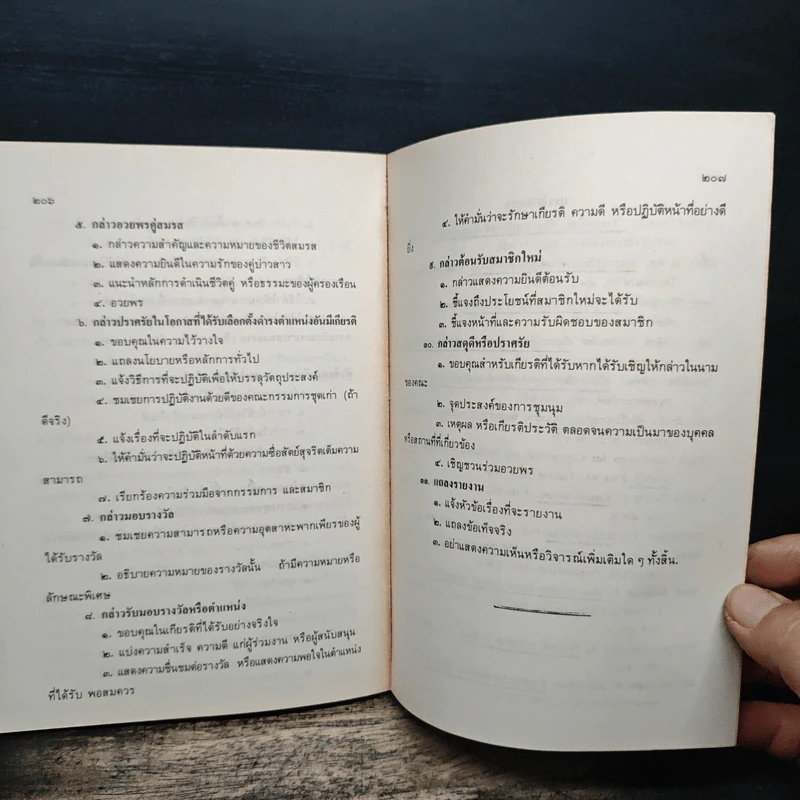 ๒๐๖
๕. กล่าวอวยพรคู่สมรส
๑. กล่าวความสำคัญและความหมายของชีวิตสมรส
๒. แสดงความยินดีในความรักของคู่บ่าวสาว
๓. แนะนำหลักการดำเนินชีวิตคู่ หรือธรรมะของผู้ครองเรือน
๔. อวยพร
๖. กล่าวปราศรัยในโอกาสที่ได้รับเลือกตั้งดำรงตำแหน่งอันมีเกียรติ
๑. ขอบคุณในความไว้วางใจ
๒. แถลงนโยบายหรือหลักการทั่วไป
๓. แจ้งวิธีการที่จะปฏิบัติเพื่อให้บรรลุวัตถุประสงค์
๔. ชมเชยการปฏิบัติงานด้วยดีของคณะกรรมการชุดเก่า (ถ้า
ดีจริง)
๕. แจ้งเรื่องที่จะปฏิบัติในลำดับแรก
๖. ให้คำมั่นว่าจะปฏิบัติหน้าที่ด้วยความซื่อสัตย์สุจริตเต็มความ
สามารถ
๗. เรียกร้องความร่วมมือจากกรรมการ และสมาชิก
๗. กล่าวมอบรางวัล
๑. ชมเชยความสามารถหรือความอุตสาหะพากเพียรของผู้
ได้รับรางวัล
๒. อธิบายความหมายของรางวัลนั้น ถ้ามีความหมายหรือ
ลักษณะพิเศษ
๘. กล่าวรับมอบรางวัลหรือตำแหน่ง
๑. ขอบคุณในเกียรติที่ได้รับอย่างจริงใจ
๒. แบ่งความสำเร็จ ความดี แก่ผู้ร่วมงาน หรือผู้สนับสนุน
๓. แสดงความชื่นชมต่อรางวัล หรือแสดงความพอใจในตำแหน่ง
ที่ได้รับ พอสมควร
๒๐๗
๔. ให้คำมั่นว่าจะรักษาเกียรติ ความดี หรือปฏิบัติหน้าที่อย่างดี
ยิ่ง
๙. กล่าวต้อนรับสมาชิกใหม่
๑. กล่าวแสดงความยินดีต้อนรับ
๒. ชี้แจงถึงประโยชน์ที่สมาชิกใหม่จะได้รับ
๓. ชี้แจงหน้าที่และความรับผิดชอบของสมาชิก
๑๐. กล่าวสดุดีหรือปราศรัย
๑. ขอบคุณสำหรับเกียรติที่ได้รับหากได้รับเชิญให้กล่าวในนาม
ของคณะ
๒. จุดประสงค์ของการชุมนุม
๓. เหตุผล หรือเกียรติประวัติ ตลอดจนความเป็นมาของบุคคล
หรือสถานที่ที่เกี่ยวข้อง
๔. เชิญชวนร่วมอวยพร
๑๑. แถลงรายงาน
๑. แจ้งหัวข้อเรื่องที่จะรายงาน
๒. แถลงข้อเท็จจริง
๓. อย่าแสดงความเห็นหรือวิจารณ์เพิ่มเติมใด ๆ ทั้งสิ้น.